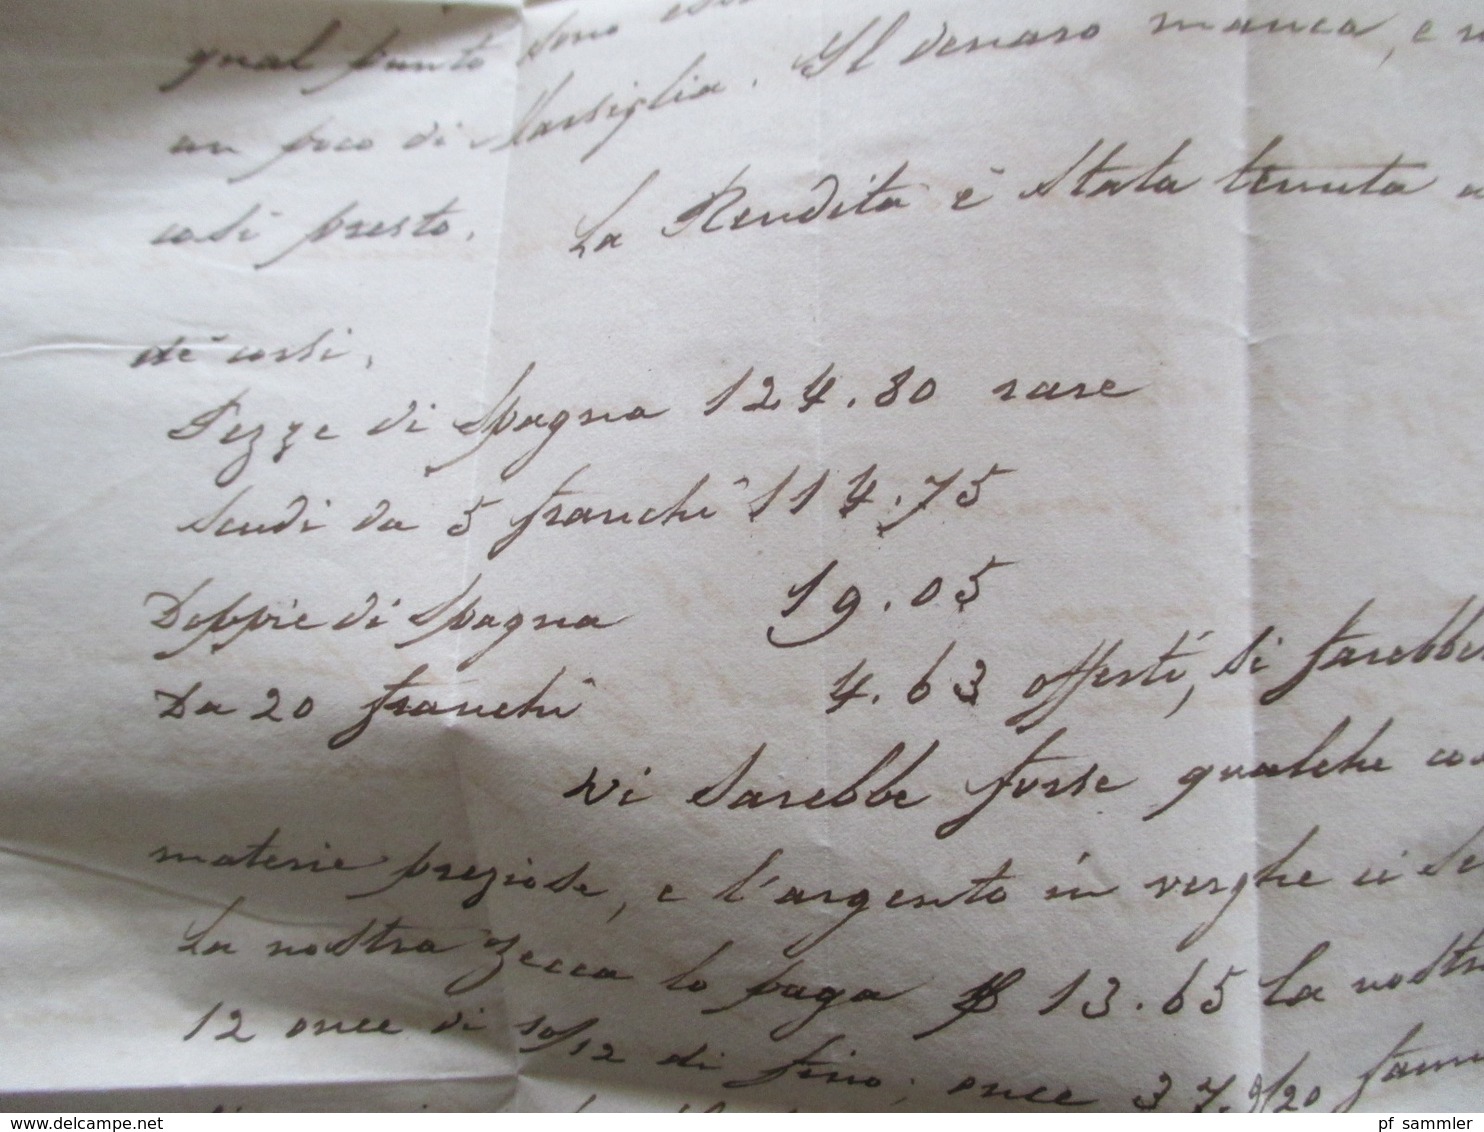 qual punto sono
un poco di Marsiglia. Il denaro manca, e
così presto. La Rendita è stata tenuta
dè corsi.
Pezze di Spagna 124.80 rare
Scudi da 5 franchi 114.75
Doppie di Spagna 19.05
Da 20 franchi 4.63 offerti, si farebbe
Vi sarebbe forse qualche
materie preziose, e l'argento in verghe ci se
La nostra Zecca lo paga 13.65 La nostra
12 once di 10/12 di fino; once 37.9/20
www.delcampe.net
pf_sammler